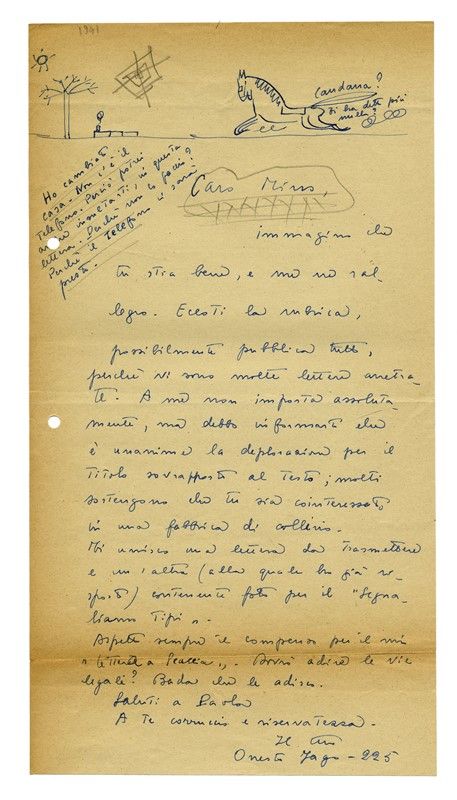 1941
Candana?
Ti ha detto più
nulla?
Ho cambiato
casa. Non c'è il
telefono. Perciò potrei
anche in questa
lettera. Perché non lo faccio?
Perché il telefono ci sarà
presto.
Caro Mino,
immagino che
tu stia bene, e me ne ral-
legro. Eccoti la rubrica,
possibilmente pubblica tutto,
perché vi sono molte lettere arretra-
te. A me non importa assoluta-
mente, ma debbo informarti che
è unanime la deplorazione per il
titolo sovrapposto al testo; molti
sostengono che tu sia cointeressato
in una fabbrica di collirio.
Ti unisco una lettera da trasmettere
e un'altra (alla quale ho già ri-
sposto) contenente foto per il "Segna-
liamo Tipi".
Aspetto sempre il compenso per il mio
"Letterato a Caccia". Dovrò adire le vie
legali? Bada che le adisco.
Saluti a Paola
A te corruccio e riservatezza.
Il tuo
Onesto Jago - 225